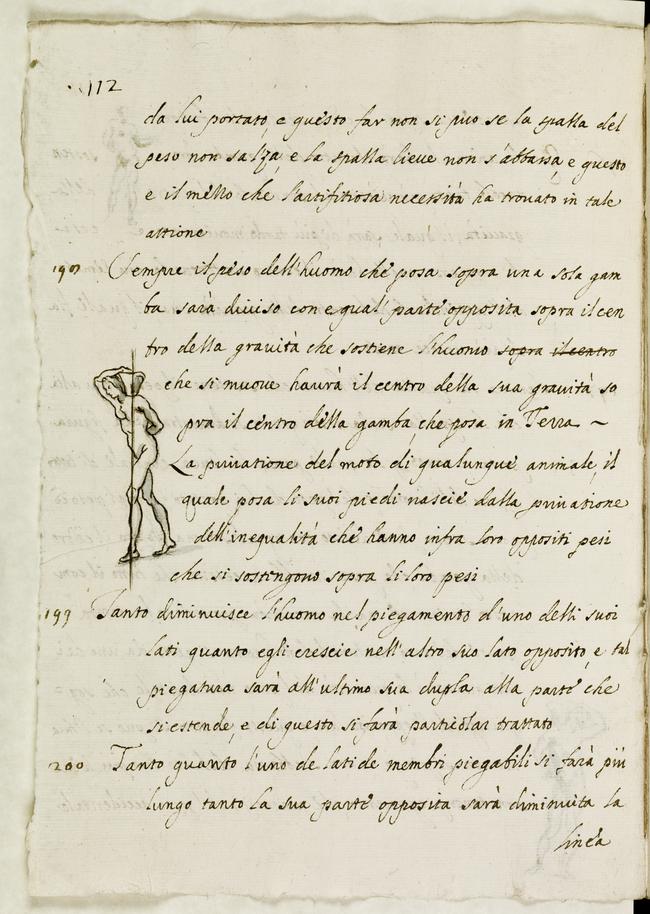 112
da lui portato, e questo far non si puo se la spalla del
peso non s'alza, e la spalla lieve non s'abbassa, e questo
e il mezzo che l'artifitiosa necessità ha trovato in tale
attione
Sempre il peso dell'huomo che posa sopra una sola gam
ba sarà diviso con egual' parte opposita sopra il cen
tro della gravità che sostiene l'huomo sopra il centro
che si muove haurà il centro della sua gravità so
pra il centro della gamba, che posa in Terra ~
La privatione del moto di qualunque animale, il
quale posa li suoi piedi nascie dalla privatione
dell'inequalità che hanno infra loro oppositi pesi
che si sostingono sopra li loro pesi
199 Tanto diminuisce l'huomo nel piegamento d'uno delli suoi
lati quanto egli crescie nell'altro suo lato opposito, e tal
piegatura sarà all'ultimo sua dupla alla parte che
si estende, e di questo si farà particolar trattato
200 Tanto quanto l'uno de lati de membri piegabili si farà più
lungo tanto la sua parte opposita sarà diminuita la
linea